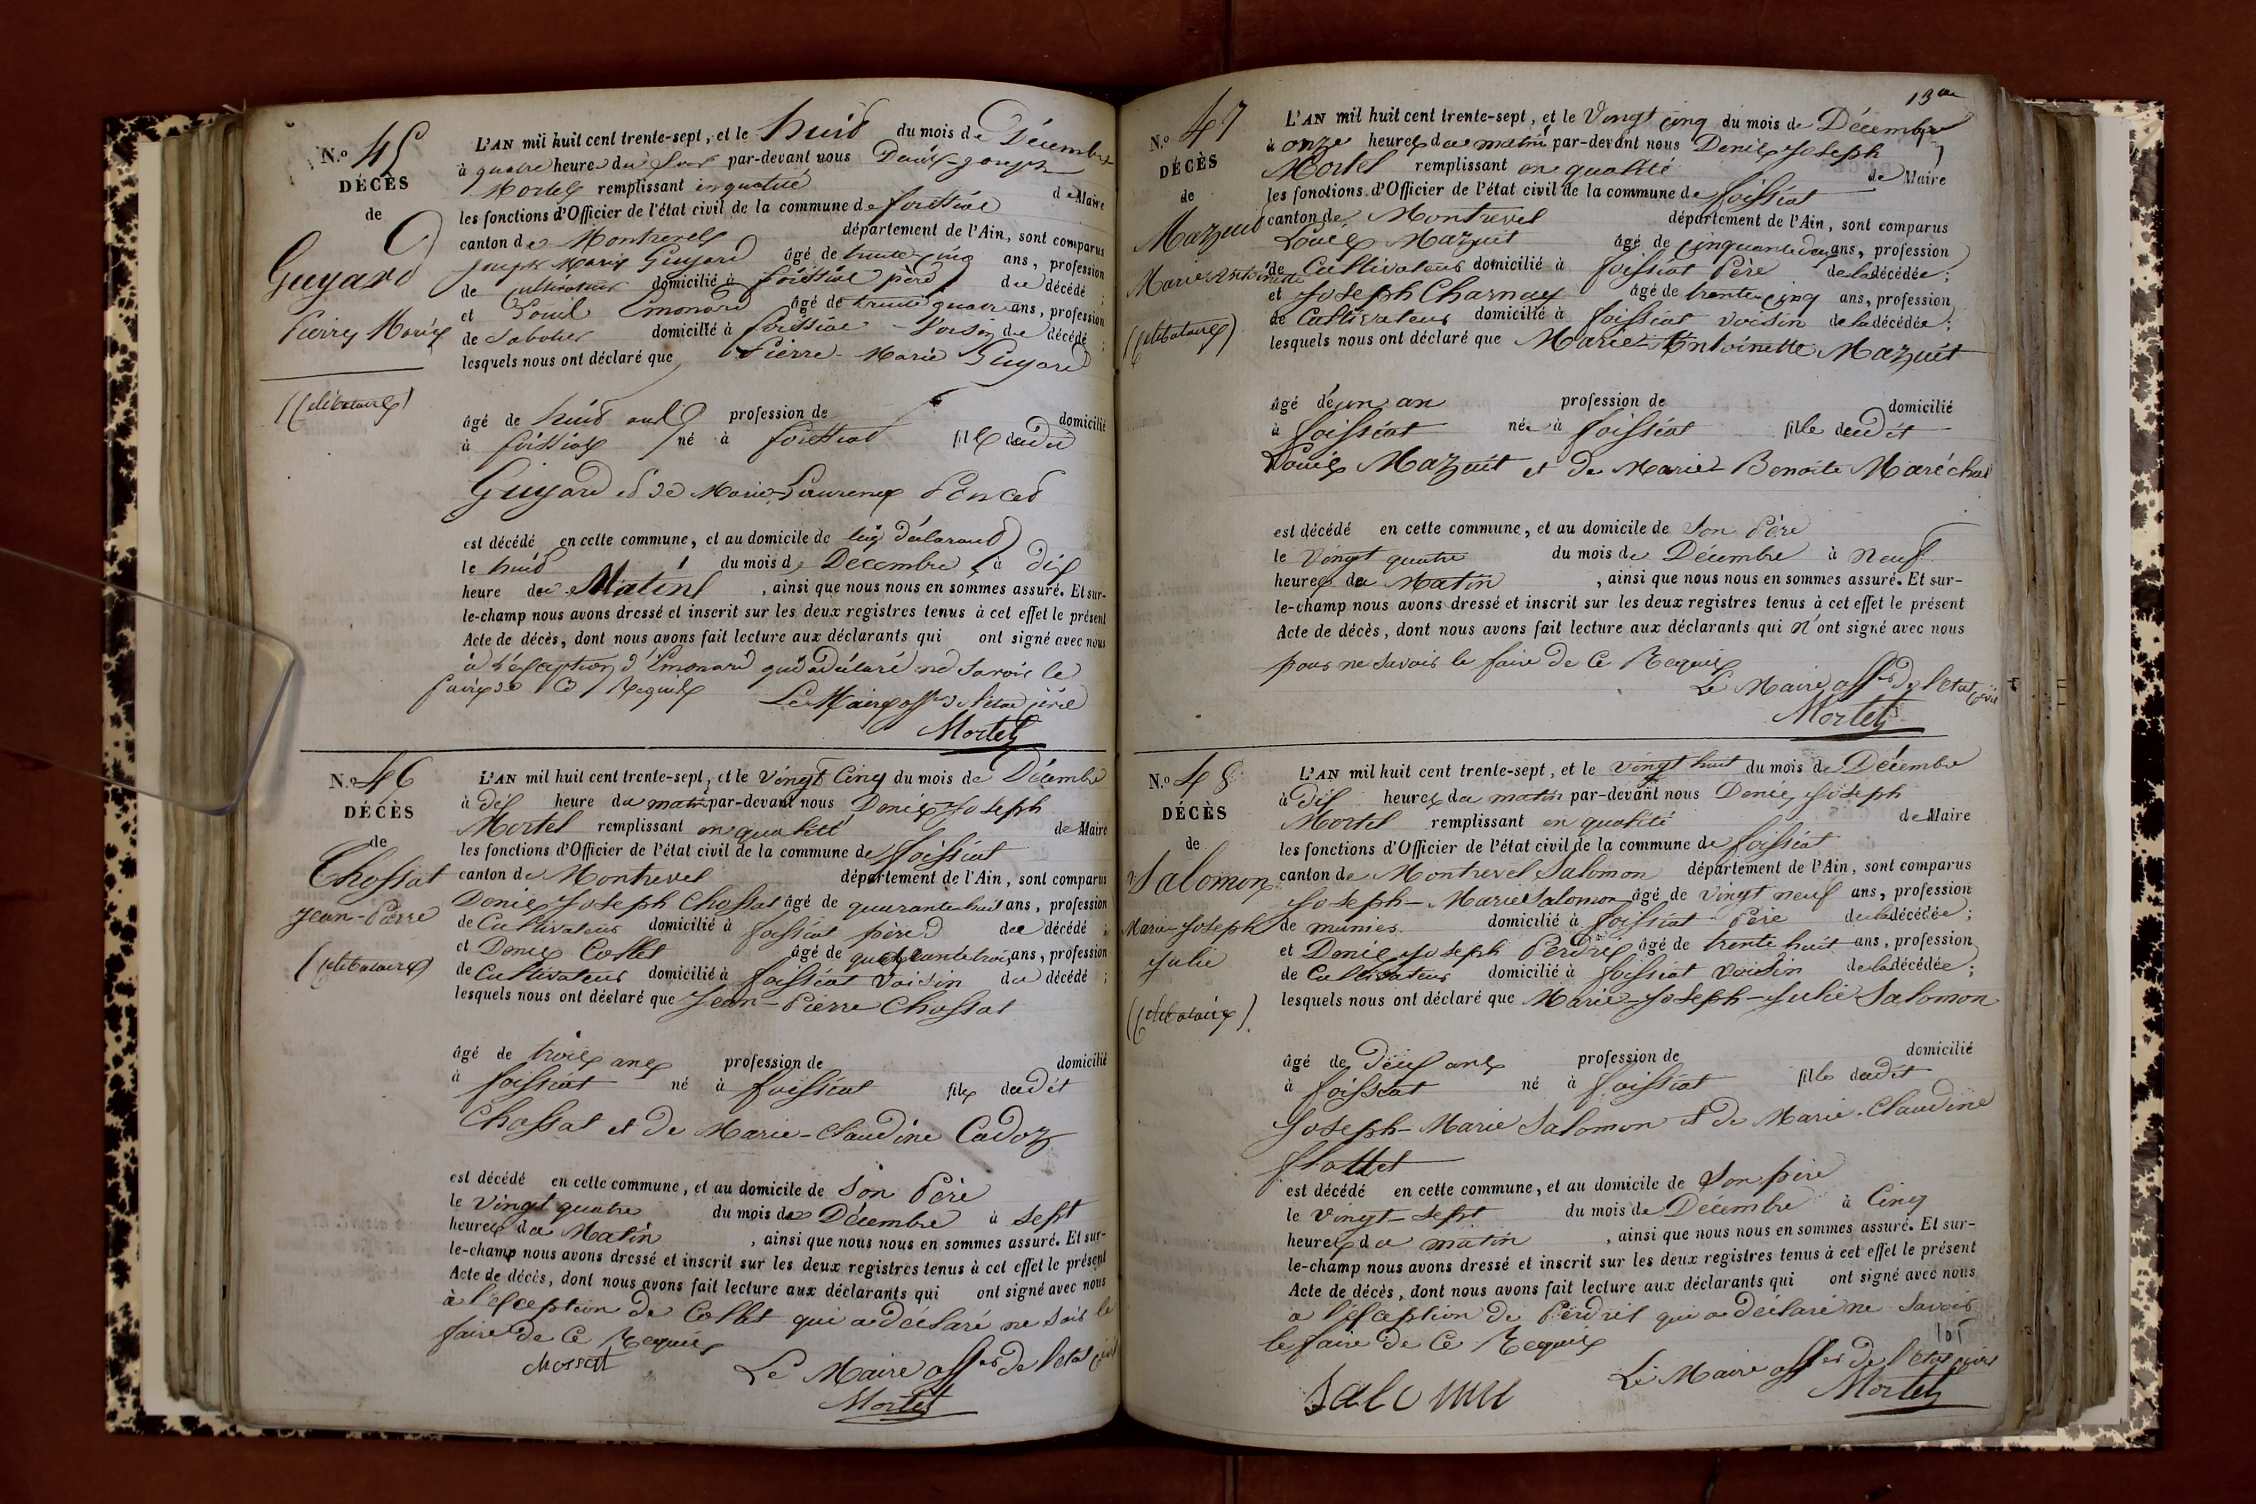 N.o 45
DÉCÈS
de
Guyard
Pierre Marie
(Célibataire)
L'AN mil huit cent trente-sept, et le huit du mois de Décembre
à quatre heures du soir par-devant nous Denis-Joseph
Mortel remplissant en qualité de Maire
les fonctions d'Officier de l'état civil de la commune de foissiat
canton de Montrevel département de l'Ain, sont comparus
Joseph Marie Guyard âgé de trente cinq ans, profession
de cultivateur domicilié à foissiat père du décédé ;
et Louis Emonard âgé de trente quatre ans, profession
de Sabotier domicilié à foissiat Voisin de décédé ;
lesquels nous ont déclaré que Pierre-Marie Guyard
âgé de huit ans profession de domicilié
à foissiat né à foissiat fils dudit
Guyard et de Marie-Laurence Poncet
est décédé en cette commune, et au domicile de luy déclarant
le huit du mois de Décembre à dix
heure du Matin, ainsi que nous nous en sommes assuré. Et sur-
le-champ nous avons dressé et inscrit sur les deux registres tenus à cet effet le présent
Acte de décès, dont nous avons fait lecture aux déclarants qui ont signé avec nous
à l'éxception d'Emonard qui a déclaré ne Savoir le
faire de ce Requis
Le Maire offer de l'état civil
Mortel
N.o 46
DÉCÈS
de
Chossat
Jean-Pierre
(célibataire)
L'AN mil huit cent trente-sept, et le Vingt Cinq du mois de Décembre
à dix heure du matin par-devant nous Denis Joseph
Mortel remplissant en qualité de Maire
les fonctions d'Officier de l'état civil de la commune de foissiat
canton de Montrevel département de l'Ain, sont comparus
Denis Joseph Chossat âgé de quarante huit ans, profession
de Cultivateur domicilié à foissiat père du décédé ;
et Denis Collet âgé de quarante trois ans, profession
de Cultivateur domicilié à foissiat Voisin du décédé ;
lesquels nous ont déclaré que Jean-Pierre Chossat
âgé de trois ans profession de domicilié
à foissiat né à foissiat fils dudit
Chossat et de Marie-Claudine Cadoz
est décédé en cette commune, et au domicile de Son Père
le Vingt quatre du mois de Décembre à Sept
heures du Matin, ainsi que nous nous en sommes assuré. Et sur-
le-champ nous avons dressé et inscrit sur les deux registres tenus à cet effet le présent
Acte de décès, dont nous avons fait lecture aux déclarants qui ont signé avec nous
à l'éxception de Collet qui a déclaré ne Savoir le
faire de Ce Requis
Chossat
Le Maire offer de l'état civil
Mortel
13me
N.o 47
DÉCÈS
de
Mazuit
Marie Antoinette
(célibataire)
L'AN mil huit cent trente-sept, et le Vingt cinq du mois de Décembre
à onze heures du matin par-devant nous Denis Joseph
Mortel remplissant en qualité de Maire
les fonctions d'Officier de l'état civil de la commune de foissiat
canton de Montrevel département de l'Ain, sont comparus
Louis Mazuit âgé de cinquante deux ans, profession
de Cultivateur domicilié à foissiat Père de la décédée ;
et Joseph Charnay âgé de trente cinq ans, profession
de Cultivateur domicilié à foissiat voisin de la décédée ;
lesquels nous ont déclaré que Marie-Antoinette Mazuit
âgé de un an profession de domicilié
à foissiat née à foissiat fille dudit
Louis Mazuit et de Marie-Benoite Maréchal
est décédé en cette commune, et au domicile de Son Père
le Vingt quatre du mois de Décembre à Neuf
heures du Matin, ainsi que nous nous en sommes assuré. Et sur-
le-champ nous avons dressé et inscrit sur les deux registres tenus à cet effet le présent
Acte de décès, dont nous avons fait lecture aux déclarants qui n'ont signé avec nous
pour ne Savoir le faire de Ce Requis
Le Maire offer de l'état civil
Mortel
N.o 48
DÉCÈS
de
Salomon
Marie-Joseph
Julie
(célibataire)
L'AN mil huit cent trente-sept, et le Vingt huit du mois de Décembre
à dix heures du matin par-devant nous Denis Joseph
Mortel remplissant en qualité de Maire
les fonctions d'Officier de l'état civil de la commune de foissiat
canton de Montrevel Salomon département de l'Ain, sont comparus
Joseph-Marie Salomon âgé de Vingt neuf ans, profession
de munier domicilié à foissiat Père de la décédée ;
et Denis Joseph Perdrix âgé de trente huit ans, profession
de Cultivateur domicilié à foissiat Voisin de la décédée ;
lesquels nous ont déclaré que Marie-Joseph-Julie Salomon
âgé de deux ans profession de domicilié
à foissiat né à foissiat fille dudit
Joseph-Marie Salomon et de Marie-Claudine
flattet
est décédé en cette commune, et au domicile de Son père
le Vingt-Sept du mois de Décembre à Cinq
heures du matin, ainsi que nous nous en sommes assuré. Et sur-
le-champ nous avons dressé et inscrit sur les deux registres tenus à cet effet le présent
Acte de décès, dont nous avons fait lecture aux déclarants qui ont signé avec nous
a l'éxception de Perdrix qui a déclaré ne Savoir
le faire de Ce Requis
Le Maire offer de l'état civil
Mortel